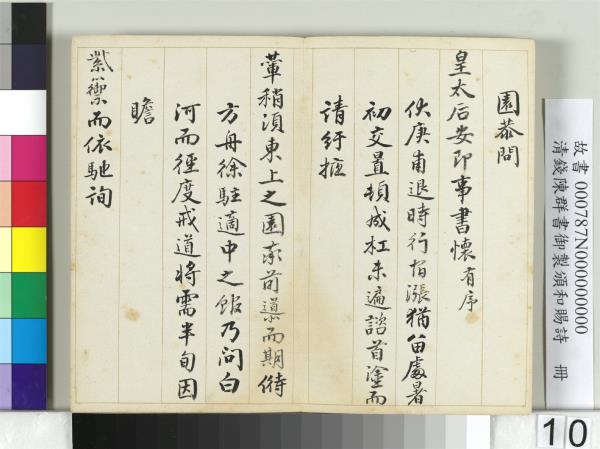 園恭問
皇太后安即事書懷有序
伏庚甫退時行猶漲猶留處暑
初交置頓城杠未遍諮首塗而
請紆
輦稍須東上之園
方舟徐駐適中之館乃問白
河而徑度戒道將需半旬因
瞻
紫籞而依馳詢
故書 000787N000000000
清錢陳群書御製頒和賜詩 冊
10